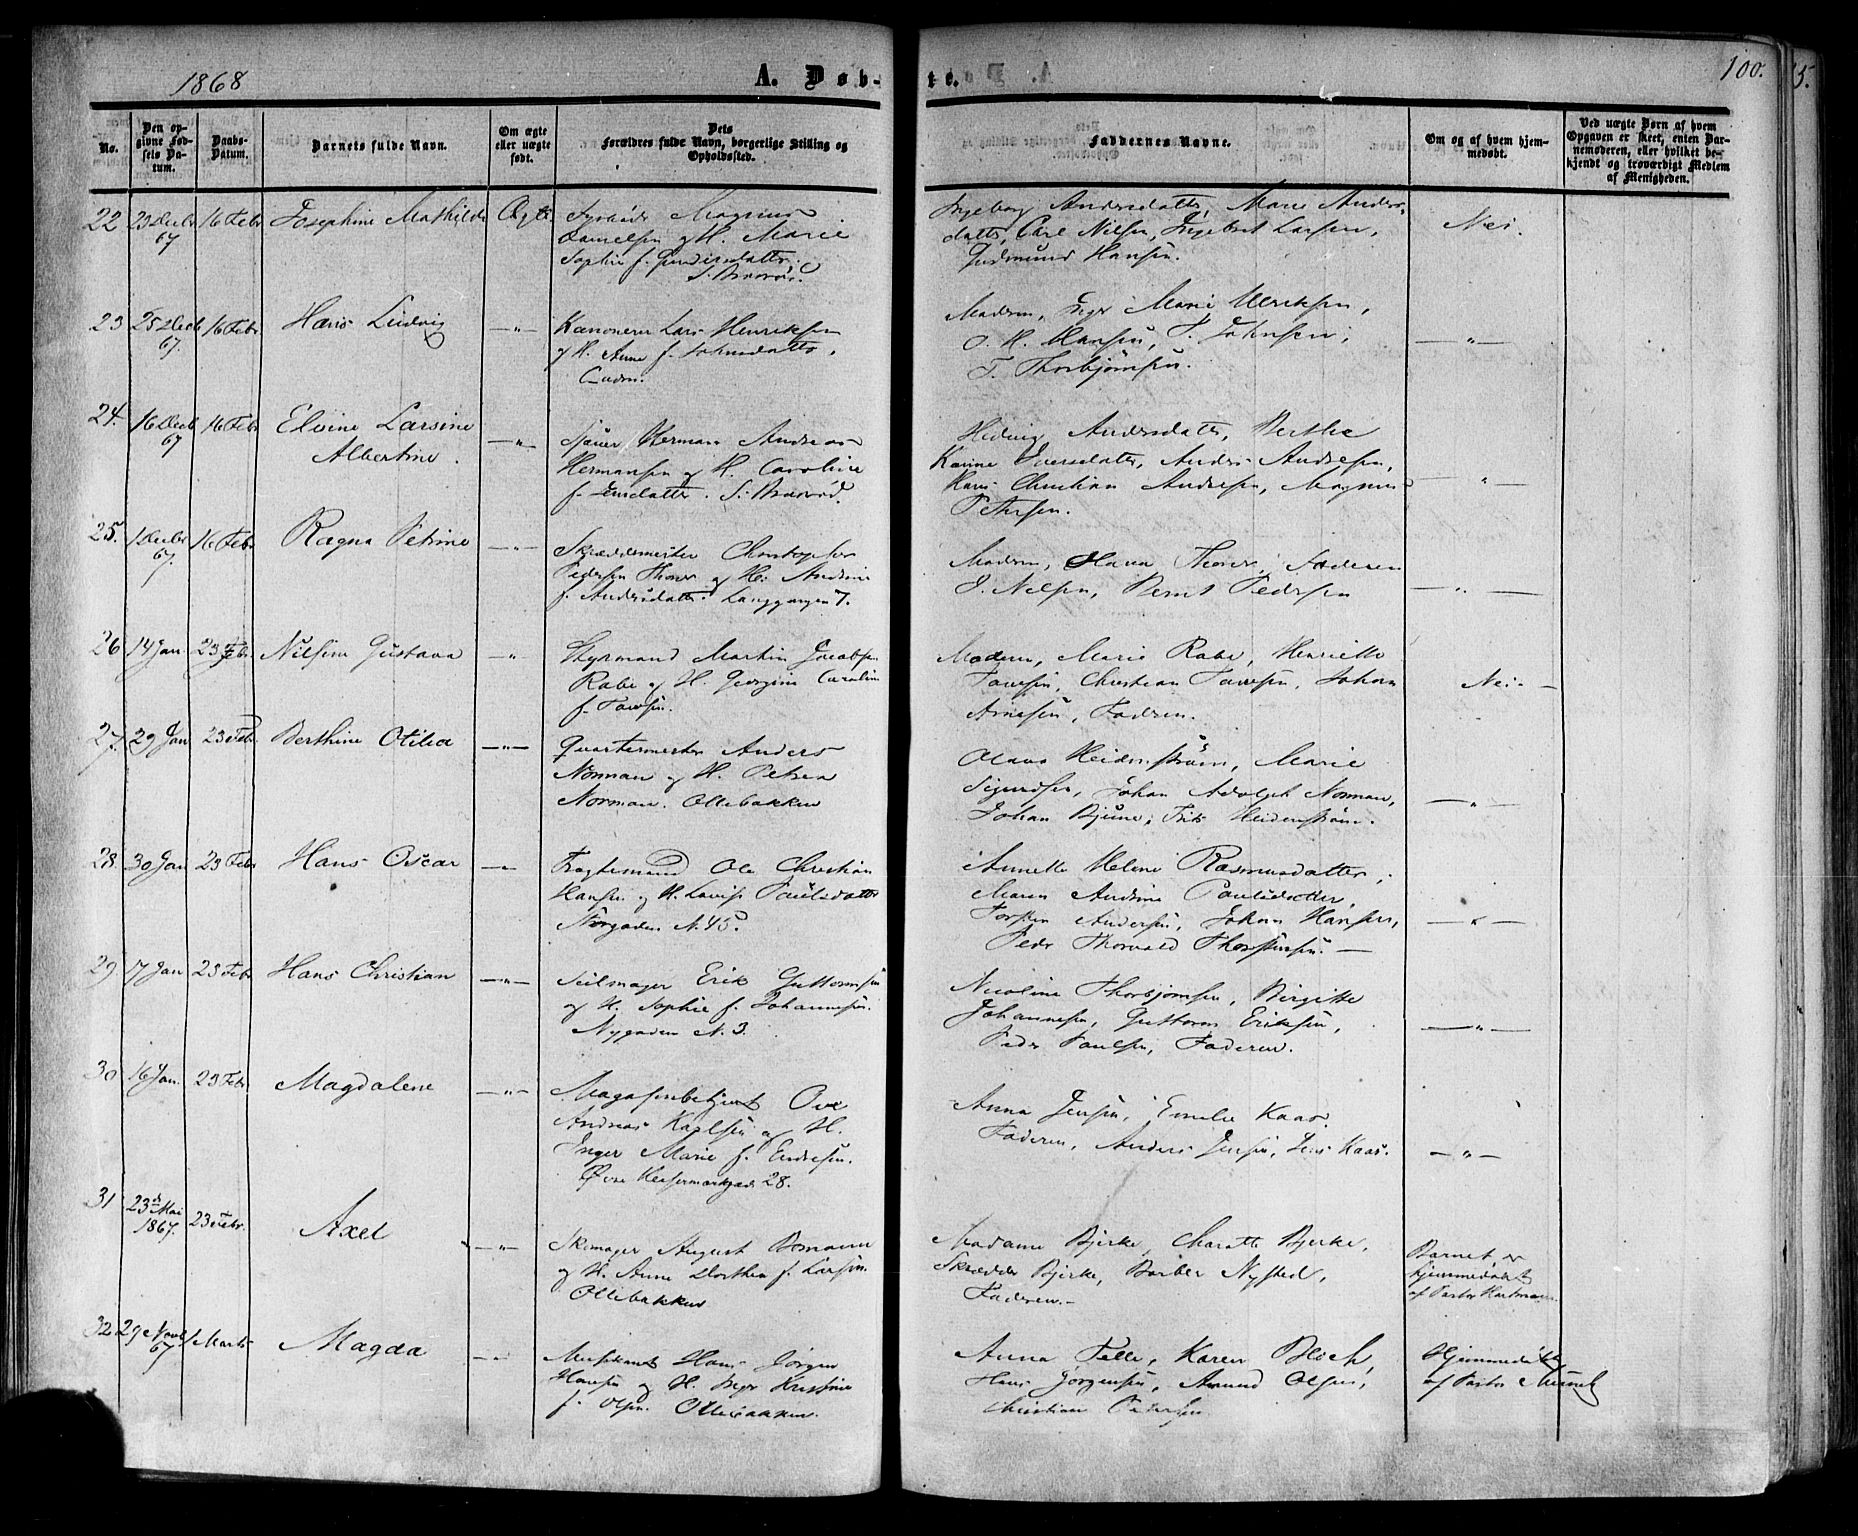 1868
A. Døb-
te.
100.
No.
Den op-
givne Fød-
sels Da-
tum.
Daabs-
Datum.
Barnets fulde Navn.
Om ægte
eller uægte
født.
Dets
Forældres fulde Navn, borgerlige Stilling og
Opholdssted.
Faddernes Navne.
Om og af hvem hjem-
medøbt.
Ved uægte Børn af hvem
Opgaven er skeet, enten Bar-
nemoderen, eller hvilket be-
kjendt og troværdigt Medlem
af Menigheden.
22 23 Decbr 67 16 Febr Josephine Mathilde Ægte
Magnus
og H. Marie
Sophie f.
Ingeborg Andersdatter, Marie Anders-
datter, Carl Nilsen, Ingebret Larsen,
Gudmund Hansen.
Nei.
23 25 Decb 67. 16 Febr Hans Ludvig —"—
Kanoneer Lars Henriksen
og H. Anne f. Johnsdatter.
Moderen, Inger Marie Ulriksen,
H. Hansen, T. Johnsen,
T. Thorbjørnsen.
—"—
24. 16 Decb 67 16 Febr Elvine Larsine
Albertine. —"—
Sjouer Herman Andreas
Hermansen og H. Caroline
f. Jensdatter.
Hedvig Andersdatter, Berthe
Karine Iversdatter, Anders Andresen,
Hans Christian Andresen, Magnus
Petersen.
—"—
25. 1 Decbr 67. 16 Febr Ragna Petrine —"—
Skræddermester Christopher
Pedersen Thorer og H. Andrine
f. Andersdatter. Langgangen 7.
Moderen, Hana Thorer, Faderen
J. Nilsen, Bernt Pedersen
—"—
26 14 Jan 23 Febr. Nilsine Gustava —"—
Styrmand Martin Jacobsen
Rabe og H. Georgine Caroline
Moderen, Marie Rabe, Henriette
Christian Johan
Arnesen, Faderen.
Nei —
27. 29 Jan 23 Febr. Berthine Otilia —"—
Quartermester Anders
Norman og H. Petrea
Norman. Ollebakken
Olava Heidenstrøm, Marie
Sigurdsen, Johan Adolph Norman,
Johan Bjune, Frits Heidenstrøm.
—"—
28. 30 Jan 23 Febr Hans Oscar —"—
Fragtemand Ole Christian
Hansen og H. Lovise Paulsdatter
Nørgaden N. 45.
Annette Helene Rasmusdatter,
Maren Andrine Paulsdatter,
Torsten Andersen, Johan Hansen,
Peder Thorvald Thorstensen. —
—"—
29. 17 Jan 23 Febr Hans Christian —"—
Seilmager Erik Guttormsen
og H. Sophie f. Johannesen.
Nygaden N. 3.
Nicoline Thorbjørnsen, Birgitte
Johannesen, Guttorm Eriksen,
Peder Paulsen, Faderen.
—"—
30 16 Jan. 23 Febr Magdalene —"—
Magasinbetjent Ove
Andreas Karlsen og H.
Inger Marie f. Endresen.
Øvre 28.
Anna Jensen, Emelie Kaas.
Faderen, Anders Jensen, Jens Kaas.
—"—
31 23d Mai 1867. 23 Febr. Axel —"—
Skomager August Bomann
og H. Anne Dorthea f. Larsen.
Ollebakken
Madame Bjerke, Charlotte Bjerke,
Skrædder Bjerke, Barber Nysted,
Faderen.—
Barnet er
hjemmedøbt
af Pastor Hartmann
32 29 Novb 67 1 Marts Magda —"—
Musikant Hans Jørgen
Hansen og H. Inger Kristine
f. Olsen. Ollebakken.
Anna Felle, Karen Bloch,
Hans Jørgensen, Amund Olsen,
Christian Petersen
Hjemmedøbt
af Pastor